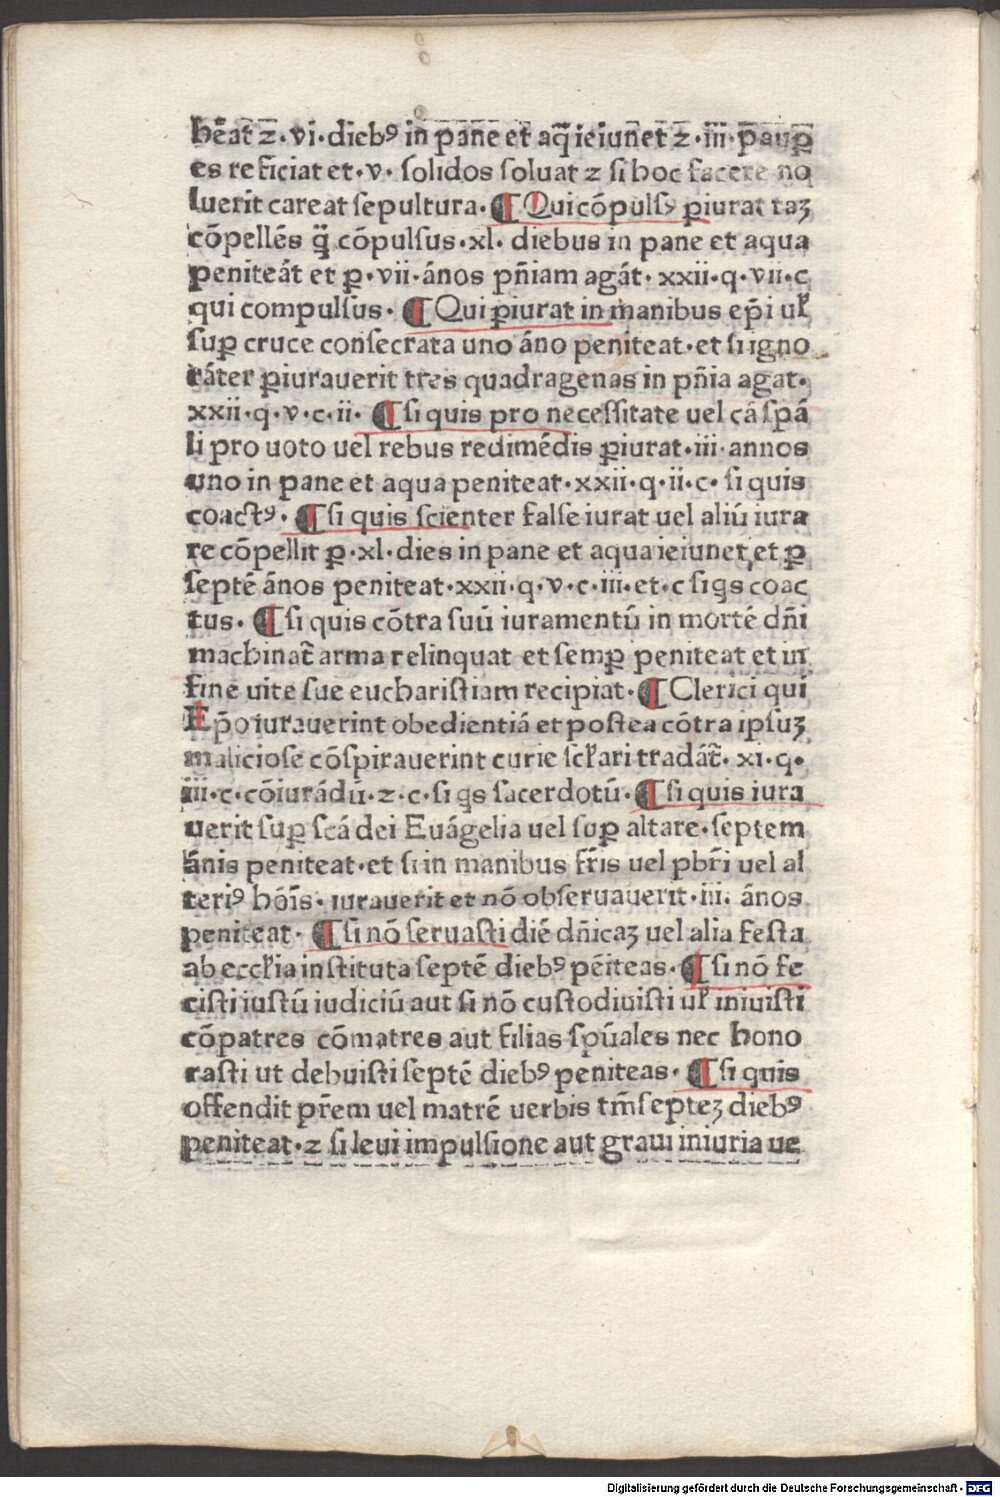 hēat ⁊·vi·dieb⁹ in pane et aq̄ ieiunet ⁊·iii·paup̲
es reficiat et·v· solidos soluat ⁊ si hoc facere no
luerit careat sepultura·¶Qui cōpuls⁹ p̲iurat taʒ
cōpellēs q̄̄ cōpulsus·xl· diebus in pane et aqua
peniteāt et p̲·vii·ānos pn̄iam agāt·xxii·q·vii·c
qui compulsus·¶Qui p̲iurat in manibus ep̄i uł
sup̲ cruce consecrata uno āno peniteat·et si igno
rāter p̲iurauerit tres quadragenas in pn̄ia agat·
xxii·q·v·c·ii·¶si quis pro necessitate uel cā spā
li pro uoto uel rebus redimēdis p̲iurat·iii·annos
uno in pane et aqua peniteat·xxii·q·ii·c· si quis
coact⁹·¶si quis scienter false iurat uel aliū iura
re cōpellit p̲·xl·dies in pane et aqua ieiunet et p̲
septē ānos peniteat·xxii·q·v·c·iii·et·c si q̇s coac
tus·¶si quis cōtra suū iuramentū in mortē dn̄i
machinat̄ arma relinquat et semp̲ peniteat et in
fine uite sue eucharistiam recipiat·¶Clerici qui
Ep̄o iurauerint obedientiā et postea cōtra ipsuʒ
maliciose cōspirauerint curie scłari tradāt̄·xi·q·
iii·c·cōiurādū·⁊·c·si q̇s sacerdotū·¶si quis iura
uerit sup̲ scā dei Euāgelia uel sup̲ altare·septem
ānis peniteat·et si in manibus fr̄is uel pbr̄i uel al
teri⁹ hōis·iurauerit et nō obseruauerit·iii· ānos
peniteat·¶si nō seruasti diē dn̄icaʒ uel alia festa
ab eccłia instituta septē dieb⁹ pēniteas·¶si nō fe
cisti iustū iudiciū aut si nō custodiuisti uł iniuisti
cōpatres cōmatres aut filias spūales nec hono
rasti ut debuisti septē dieb⁹ peniteas·¶si quis
offendit pr̄em uel matrē uerbis tm̄ septeʒ dieb⁹
peniteat·⁊ si leui impulsione aut graui iniuria ue
Digitalisierung gefördert durch die Deutsche Forschungsgemeinschaft - DFG